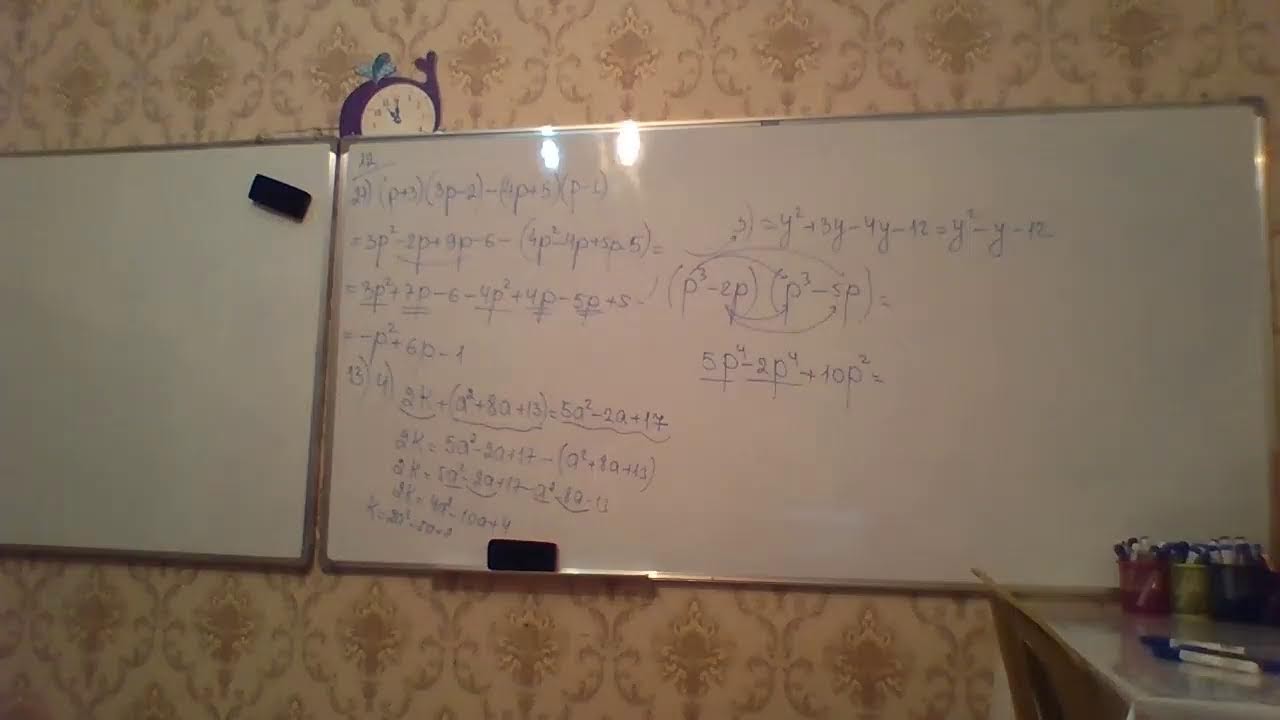 12
27) (p+3)(3p-2)-(4p+5)(p-1)
=3p²-2p+9p-6-(4p²-4p+5p-5)=
=3p²+7p-6-4p²+4p-5p+5=
=-p²+6p-1
13) 4)
2K+(a²+8a+13)=5a²-2a+17
2K=5a²-2a+17-(a²+8a+13)
2K=5a²-2a+17-a²-8a-13
2K=4a²-10a+4
K=2a²-5a+2
3)=y²+3y-4y-12=y²-y-12
(p³-2p)(p³-5p)=
5p⁴-2p⁴+10p²=